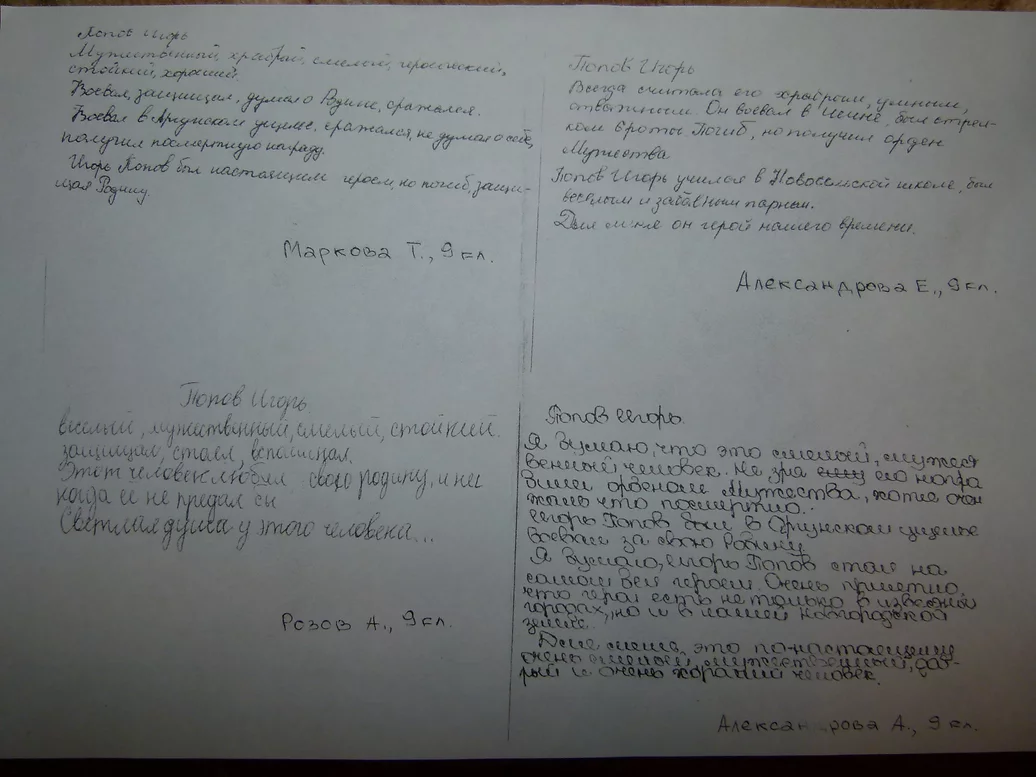 Попов Игорь
Мужественный, храбрый, смелый, героический,
стойкий, хороший.
Воевал, защищал, думал о Родине, сражался.
Воевал в Аргунском ущелье, сражался, не думая о себе,
получил посмертную награду.
Игорь Попов был настоящим героем, но погиб, защи-
щая Родину.
Маркова Т., 9 кл.
Попов Игорь
Всегда считала его храбрым, умным,
отважным. Он воевал в Чечне, был стрел-
ком 6 роты. Погиб, но получил орден
Мужества
Попов Игорь учился в Новосельской школе, был
весёлым и забавным парнем.
Для меня он герой нашего времени.
Александрова Е., 9 кл.
Попов Игорь
весёлый, мужественный, смелый, стойкий.
защищал, стоял,
Этот человек любил свою родину, и ни
когда ее не предал бы
Светлая душа у этого человека...
Розов А., 9 кл.
Попов Игорь.
Я думаю, что это смелый, мужест
венный человек. Не зря его награ
дили орденом Мужества, хотя и
жаль что посмертно.
Игорь Попов был в Аргунском ущелье
Воевал за свою Родину
Я думаю, Игорь Попов стал на
самом деле героем. Очень приятно,
что герои есть не только в известных
городах, но и в нашей Новгородской
земле.
Для меня, это по-настоящему
очень смелый, мужественный, доб-
рый и очень хороший человек.
Александрова А., 9 кл.